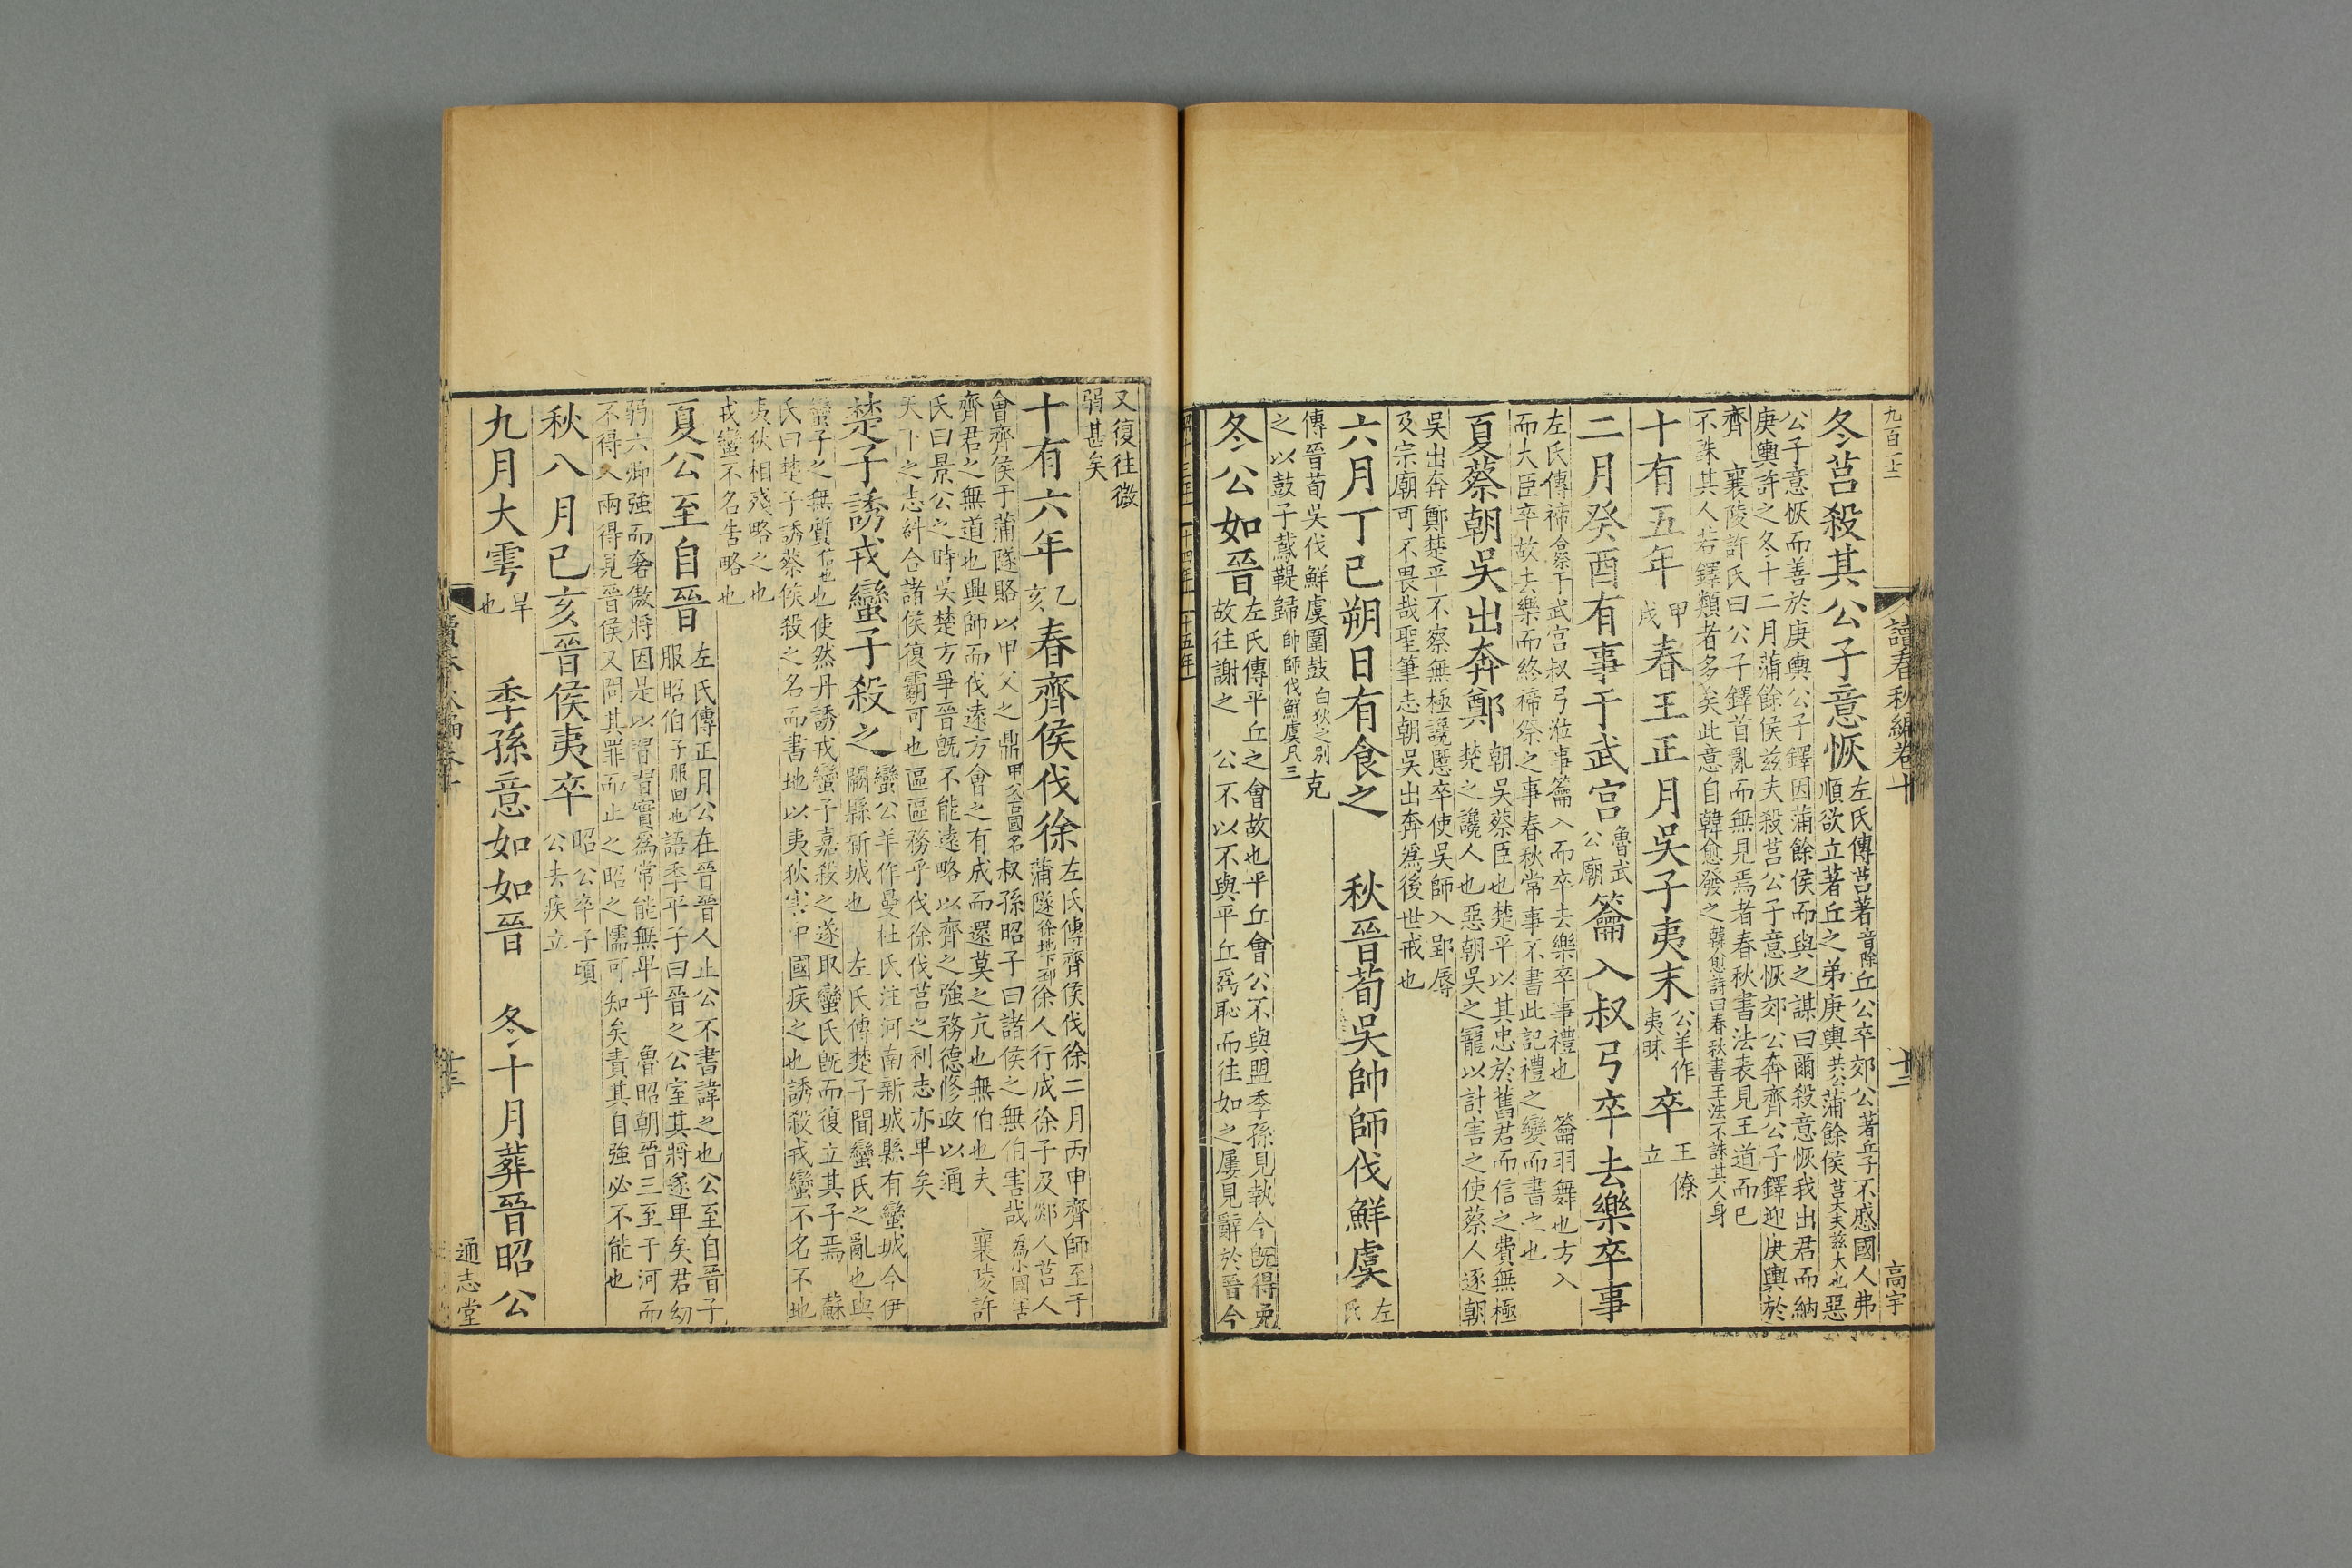 讀春秋編卷十
十二
高宇
冬莒殺其公子意恢
左氏傳莒著音除丘公卒郊公著丘子不慼國人弗
順欲立著丘之弟庚輿共公蒲餘侯莒大夫茲夫也惡
公子意恢而善於庚輿公子鐸因蒲餘侯而與之謀曰爾殺意恢我出君而納
庚輿許之冬十二月蒲餘侯茲夫殺莒公子意恢郊公奔齊公子鐸迎庚輿於
齊 襄陵許氏曰公子鐸首亂而無見焉者春秋書法表見王道而已
不誅其人若鐸類者多矣此意自韓愈發之韓愈詩曰春秋書王法不誅其人身
十有五年甲戌春王正月吳子夷末公羊作夷昧卒王僚立
二月癸酉有事于武宮魯武公廟籥入叔弓卒去樂卒事
左氏傳禘祭于武宮叔弓涖事籥入而卒去樂卒事禮也 籥羽舞也方入
而大臣卒故去樂而終禘祭之事春秋常事不書此記禮之變而書之也
夏蔡朝吳出奔鄭
朝吳蔡臣也楚平以其忠於舊君而信之費無極
楚之讒人也惡朝吳之寵以計害之使蔡人逐朝
吳出奔鄭楚平不察無極讒慝卒使吳師入郢辱
及宗廟可不畏哉聖筆志朝吳出奔爲後世戒也
六月丁巳朔日有食之 秋晉荀吳帥師伐鮮虞左氏
傳晉荀吳伐鮮虞圍鼓白狄之別克
之以鼓子鳶鞮歸帥師伐鮮虞凡三
冬公如晉
左氏傳平丘之會故也平丘會公不與盟季孫見執今旣得免
故往謝之 公不以不與平丘爲恥而往如之屢見辭於晉今
昭十三年 十四年 十五年
又復往微
弱甚矣
十有六年乙亥春齊侯伐徐
左氏傳齊侯伐徐二月丙申齊師至于
蒲隧徐地下邳徐人行成徐子及郯人莒人
會齊侯于蒲隧賂以甲父之鼎甲父古國名叔孫昭子曰諸侯之無伯害哉爲小國害
齊君之無道也興師而伐遠方會之有成而還莫之亢也無伯也夫 襄陵許
氏曰景公之時吳楚方爭晉旣不能遠略以齊之強務德修政以通
天下之志糾合諸侯復霸可也區區務乎伐徐伐莒之利志亦卑矣
楚子誘戎蠻子殺之
蠻公羊作曼杜氏注河南新城縣有蠻城今伊
闕縣新城也 左氏傳楚子聞蠻氏之亂也與
蠻子之無質信也也使然丹誘戎蠻子嘉殺之遂取蠻氏旣而復立其子焉 蘇
氏曰楚子誘蔡侯殺之名而書地以夷狄害中國疾之也誘殺戎蠻不名不地
夷狄相殘略之也
戎蠻不名告略也
夏公至自晉
左氏傳正月公在晉晉人止公不書諱之也公至自晉子
服昭伯子服回也語季平子曰晉之公室其將遂卑矣君幼
弱六卿強而奢傲將因是以習習實爲常能無卑乎 魯昭朝晉三至于河而
不得入兩得見晉侯又問其罪而止之昭之懦可知矣責其自強必不能也
秋八月己亥晉侯夷卒
昭公卒子頃
公去疾立
九月大雩旱也 季孫意如如晉 冬十月葬晉昭公
十三
通志堂